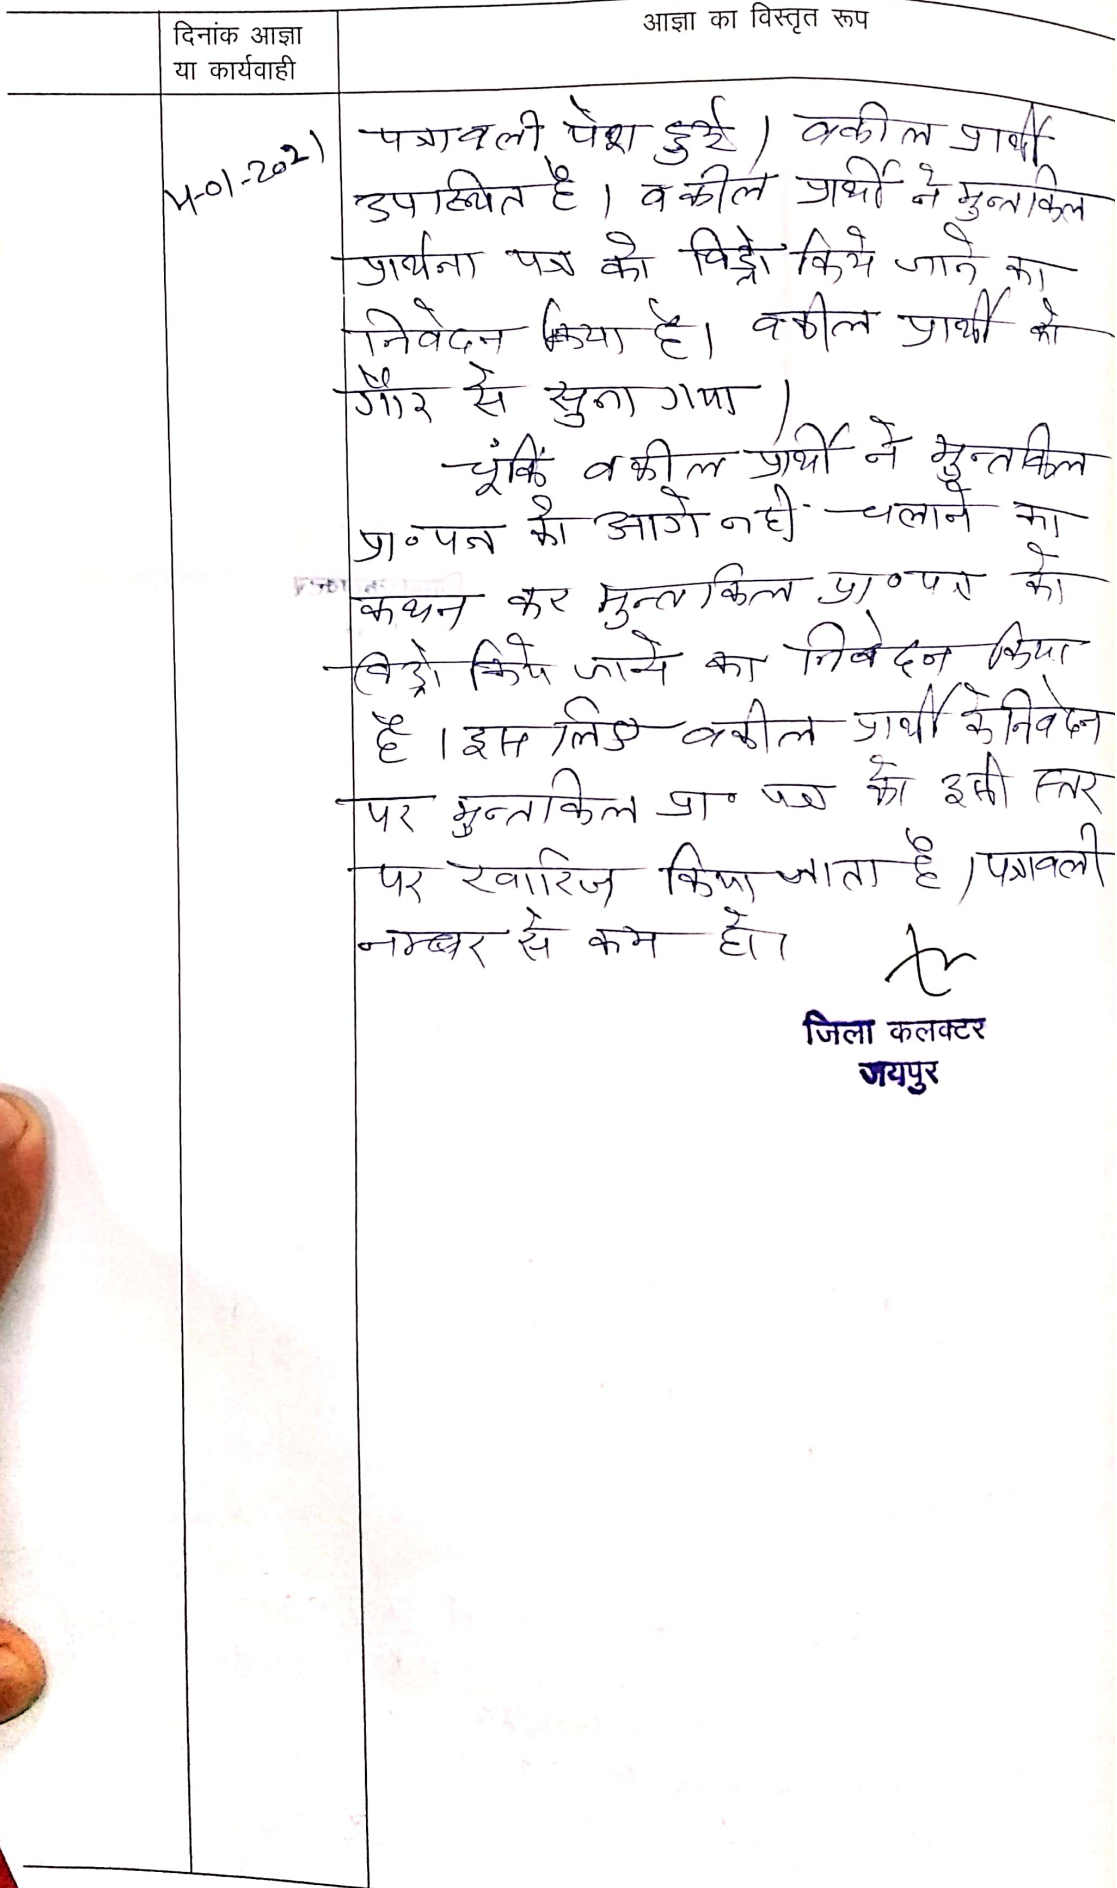 दिनांक आज्ञा
या कार्यवाही
आज्ञा का विस्तृत रूप
4-01-2021
पत्रावली पेश हुई। वकील प्रार्थी
उपस्थित है। वकील प्रार्थी ने मुन्तकिल
प्रार्थना पत्र को विड्रो किये जाने का
निवेदन किया है। वकील प्रार्थी को
गौर से सुना गया।
चूंकि वकील प्रार्थी ने मुन्तकिल
प्रा॰पत्र को आगे नहीं चलाने का
कथन कर मुन्तकिल प्रा॰पत्र को
विड्रो किये जाने का निवेदन किया
है। इस लिए वकील प्रार्थी के निवेदन
पर मुन्तकिल प्रा॰ पत्र को इसी स्तर
पर खारिज किया जाता है। पत्रावली
नम्बर से कम हो।
जिला कलक्टर
जयपुर